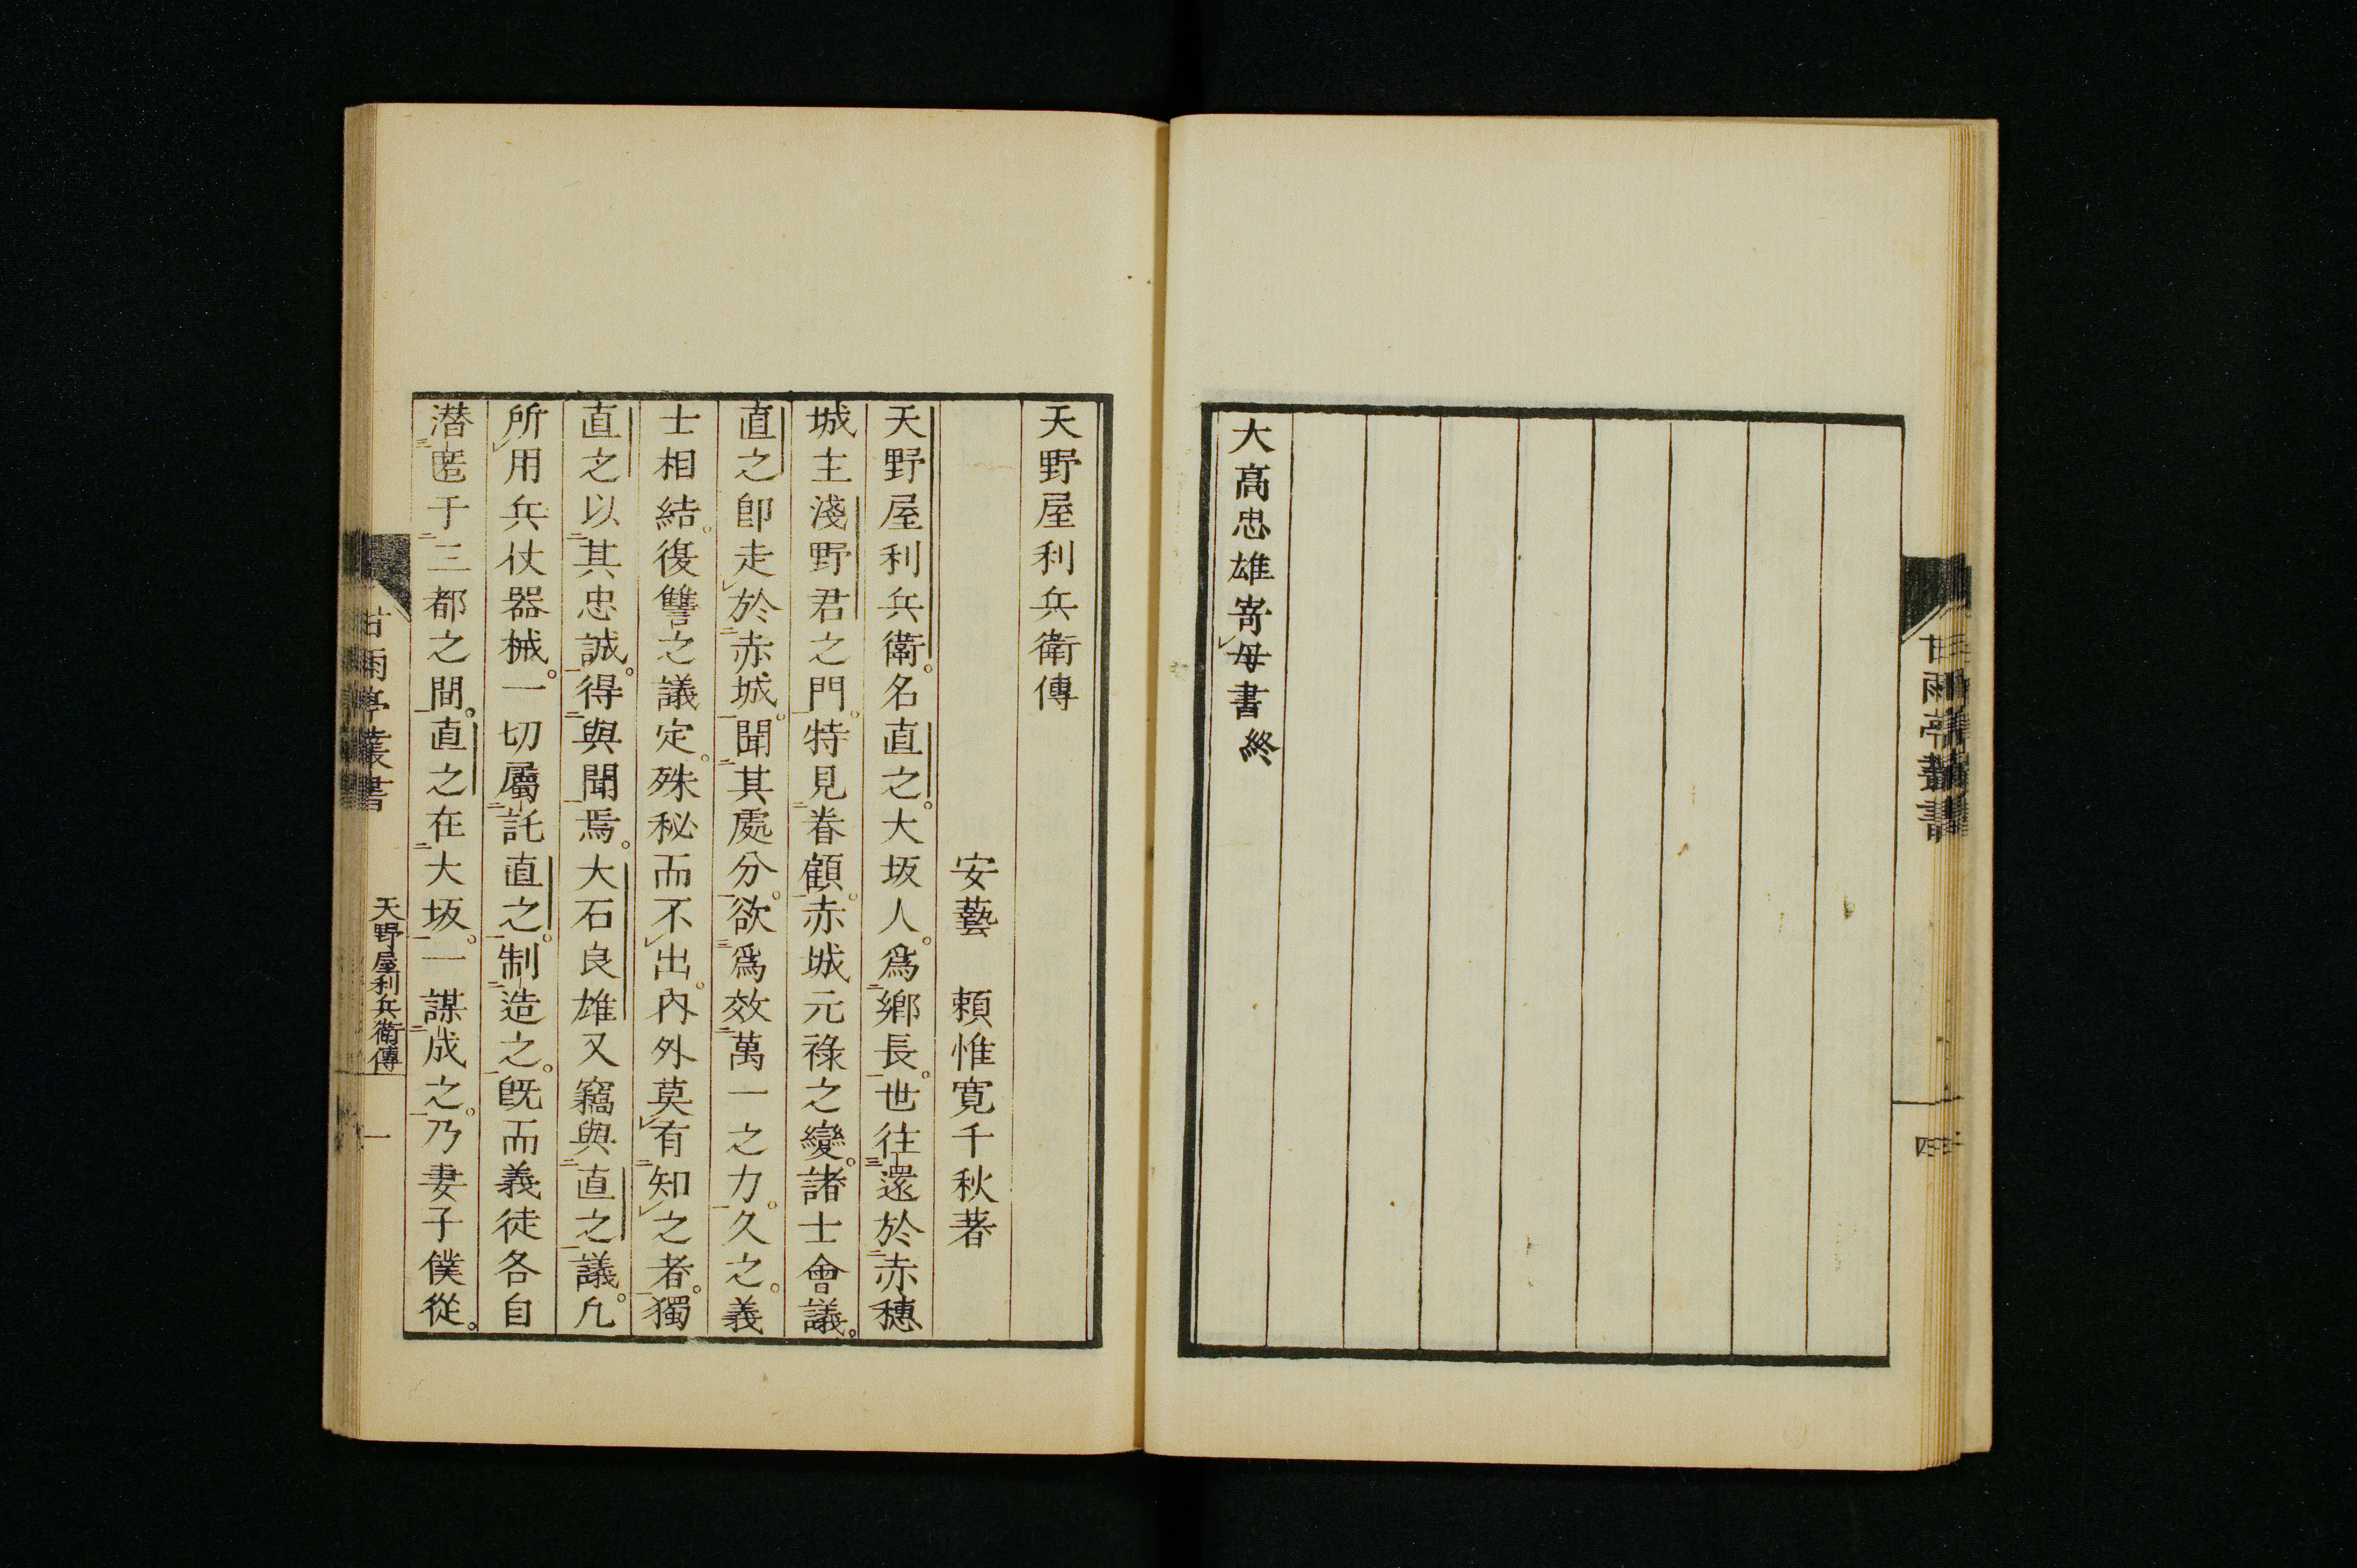 甘雨亭叢書
四
大高忠雄寄母書終
天野屋利兵衛傳
安藝 頼惟寛千秋著
天野屋利兵衛。名直之。大坂人。爲鄉長。世往還於赤穗
城主淺野君之門。特見眷顧。赤城元祿之變。諸士會議。
直之卽走於赤城。聞其處分。欲爲效萬一之力。久之。義
士相結。復讐之議定。殊秘而不出。內外莫有知之者。獨
直之以其忠誠。得與聞焉。大石良雄又竊與直之議。凡
所用兵仗器械。一切屬託直之。制造之。既而義徒各自
潜匿于三都之間。直之在大坂。一謀成之。乃妻子僕從。
甘雨亭叢書
天野屋利兵衛傳
一